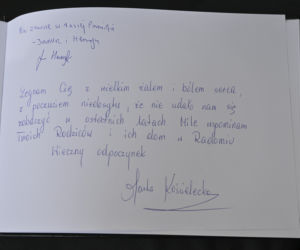 Na zawsze w naszej Pamięci
- Janka i Henryk
Żegnam Cię z wielkim żalem i bólem serca,
z poczuciem niedosytu, że nie udało nam się
zobaczyć w ostatnich latach. Mile wspominam
Twoich Rodziców i ich dom w Radomiu
Wieczny odpoczynek
Marta Kościelecka